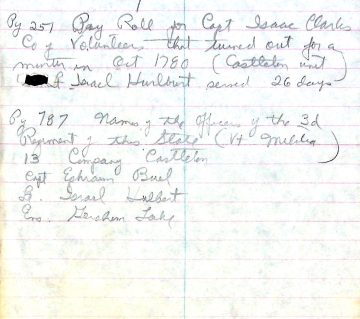 Pg 257 Pay Roll for Capt Isaac Clarks
Co of Volunteers that turned out for a
month in Oct 1780 (Castleton unit)
Israel Hurlburt served 26 days
Pg 787 Names of the Officers of the 3d
Regiment of this State (Vt Militia)
13 Company Castleton
Capt Ephraim Buel
Lt. Israel Hulbert
Ens. Gershom Lake